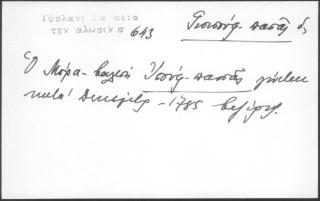 Υψηλαντ Τα μετα
την αλωσιν σ 643
Γιουσούφ-πασᾶς ὁ,
Ὁ Μόρα-βαλεσή Ἰουσούφ-πασᾶς γίνεται
κατά Δεκεμβρ - 1785 βεζίρης.